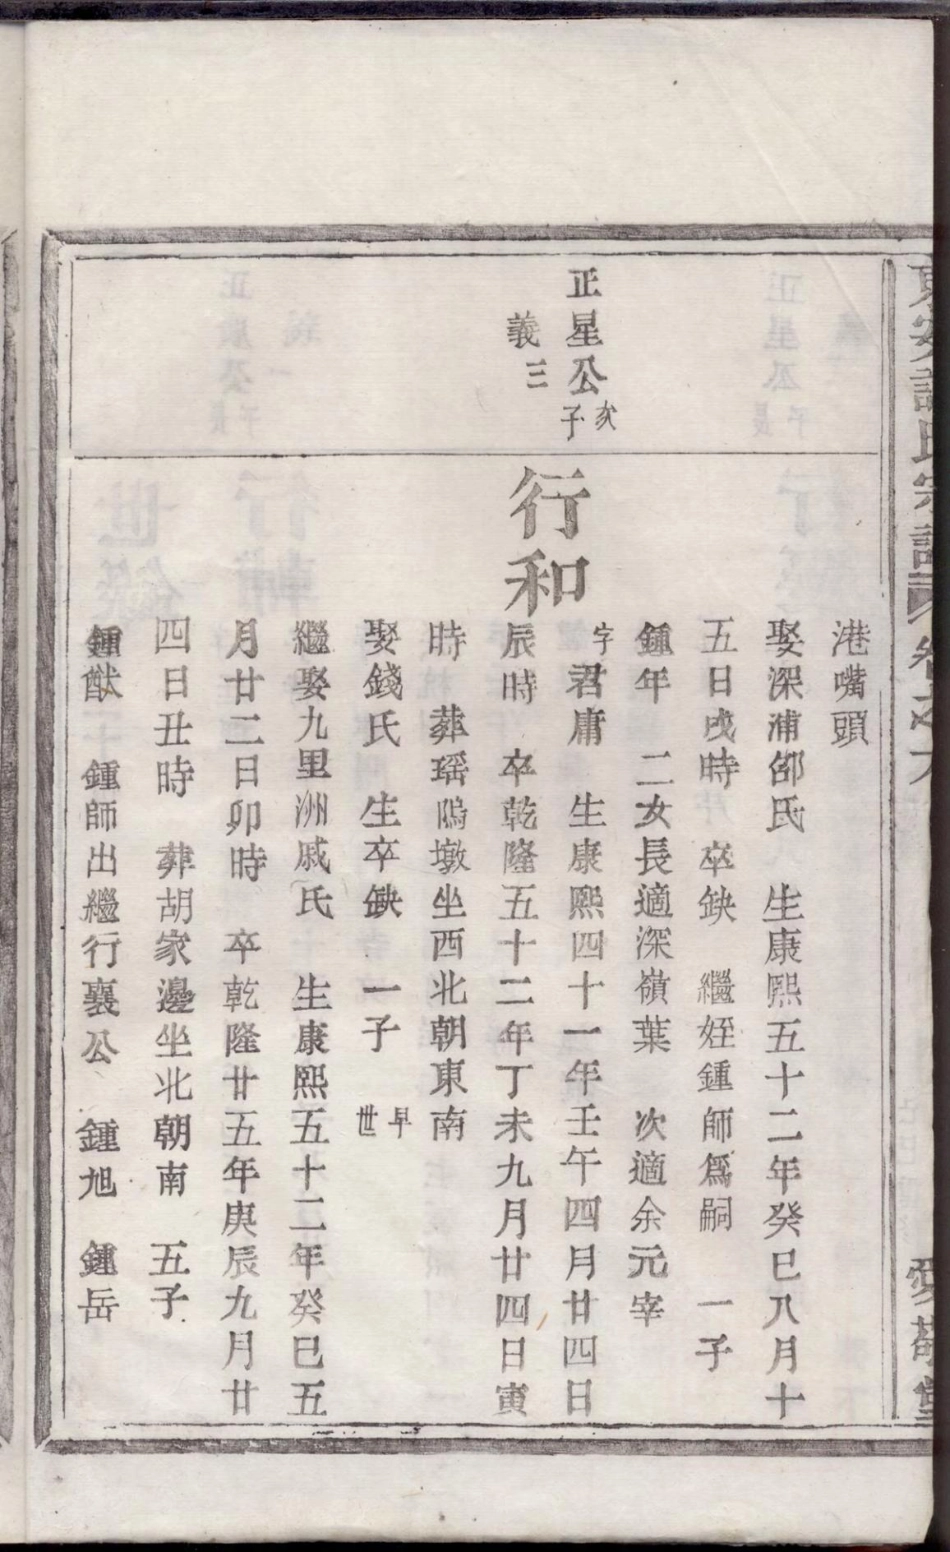 東安許氏宗譜 卷之九 愛敬堂
港嘴頭
娶深浦邵氏 生康熙五十二年癸巳八月十
五日戌時 卒缺 繼姪鍾師爲嗣 一子
鍾年 二女長適深嶺葉 次適余元宰
正星公次子
義三
行和
字君庸 生康熙四十一年壬午四月廿四日
辰時 卒乾隆五十二年丁未九月廿四日寅
時 葬瑶塢墩坐西北朝東南
娶錢氏 生卒缺 一子 早世
繼娶九里洲戚氏 生康熙五十二年癸巳五
月廿二日卯時 卒乾隆廿五年庚辰九月廿
四日丑時 葬胡家邊坐北朝南 五子
鍾猷 鍾師出繼行襄公 鍾旭 鍾岳